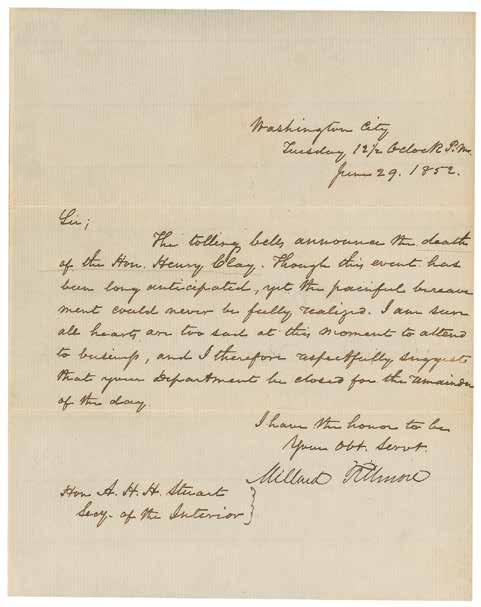 Washington City
Tuesday 12½ Oclock P.M.
June 29. 1852.
Sir;
The tolling bells announce the death
of the Hon. Henry Clay. Though this event has
been long anticipated, yet the painful bereave
ment could never be fully realized. I am sure
all hearts are too sad at this moment to attend
to business, and I therefore respectfully suggest
that your Department be closed for the remainder
of the day.
I have the honor to be
Your Obt. Servt.
Millard Fillmore
Hon A. H. H. Stuart
Secy. of the Interior